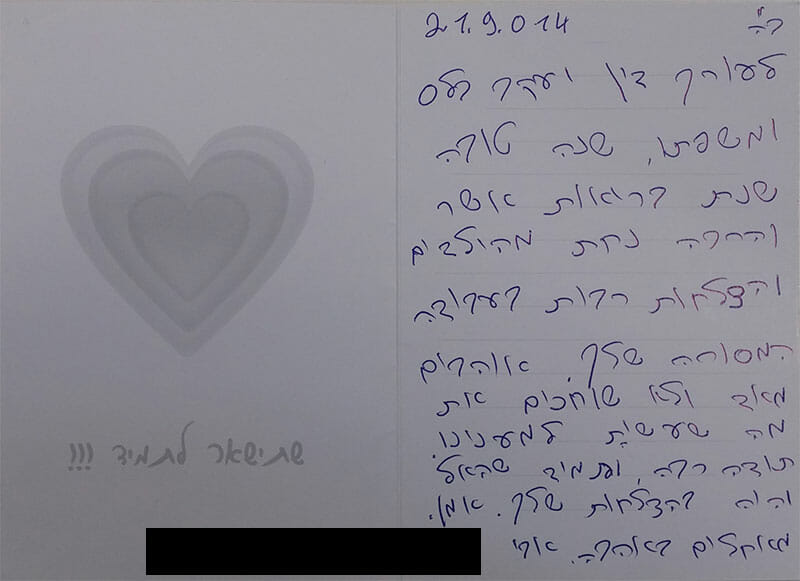 ב"ה
21.9.014
לעורך דין יעקב קלס
ומשפחתו, שנה טובה
שנת בריאות אושר
והרבה נחת מהילדים
והצלחות רבות בעבודה
המסורה שלך. אוהבים
מאוד ולא שוחכים את
מה שעשית למעננו.
תודה רבה, ותמיד שהאל
יהיה בהצלחות שלך. אמן.
מאחלים באהבה.
שתישאר לתמיד !!!